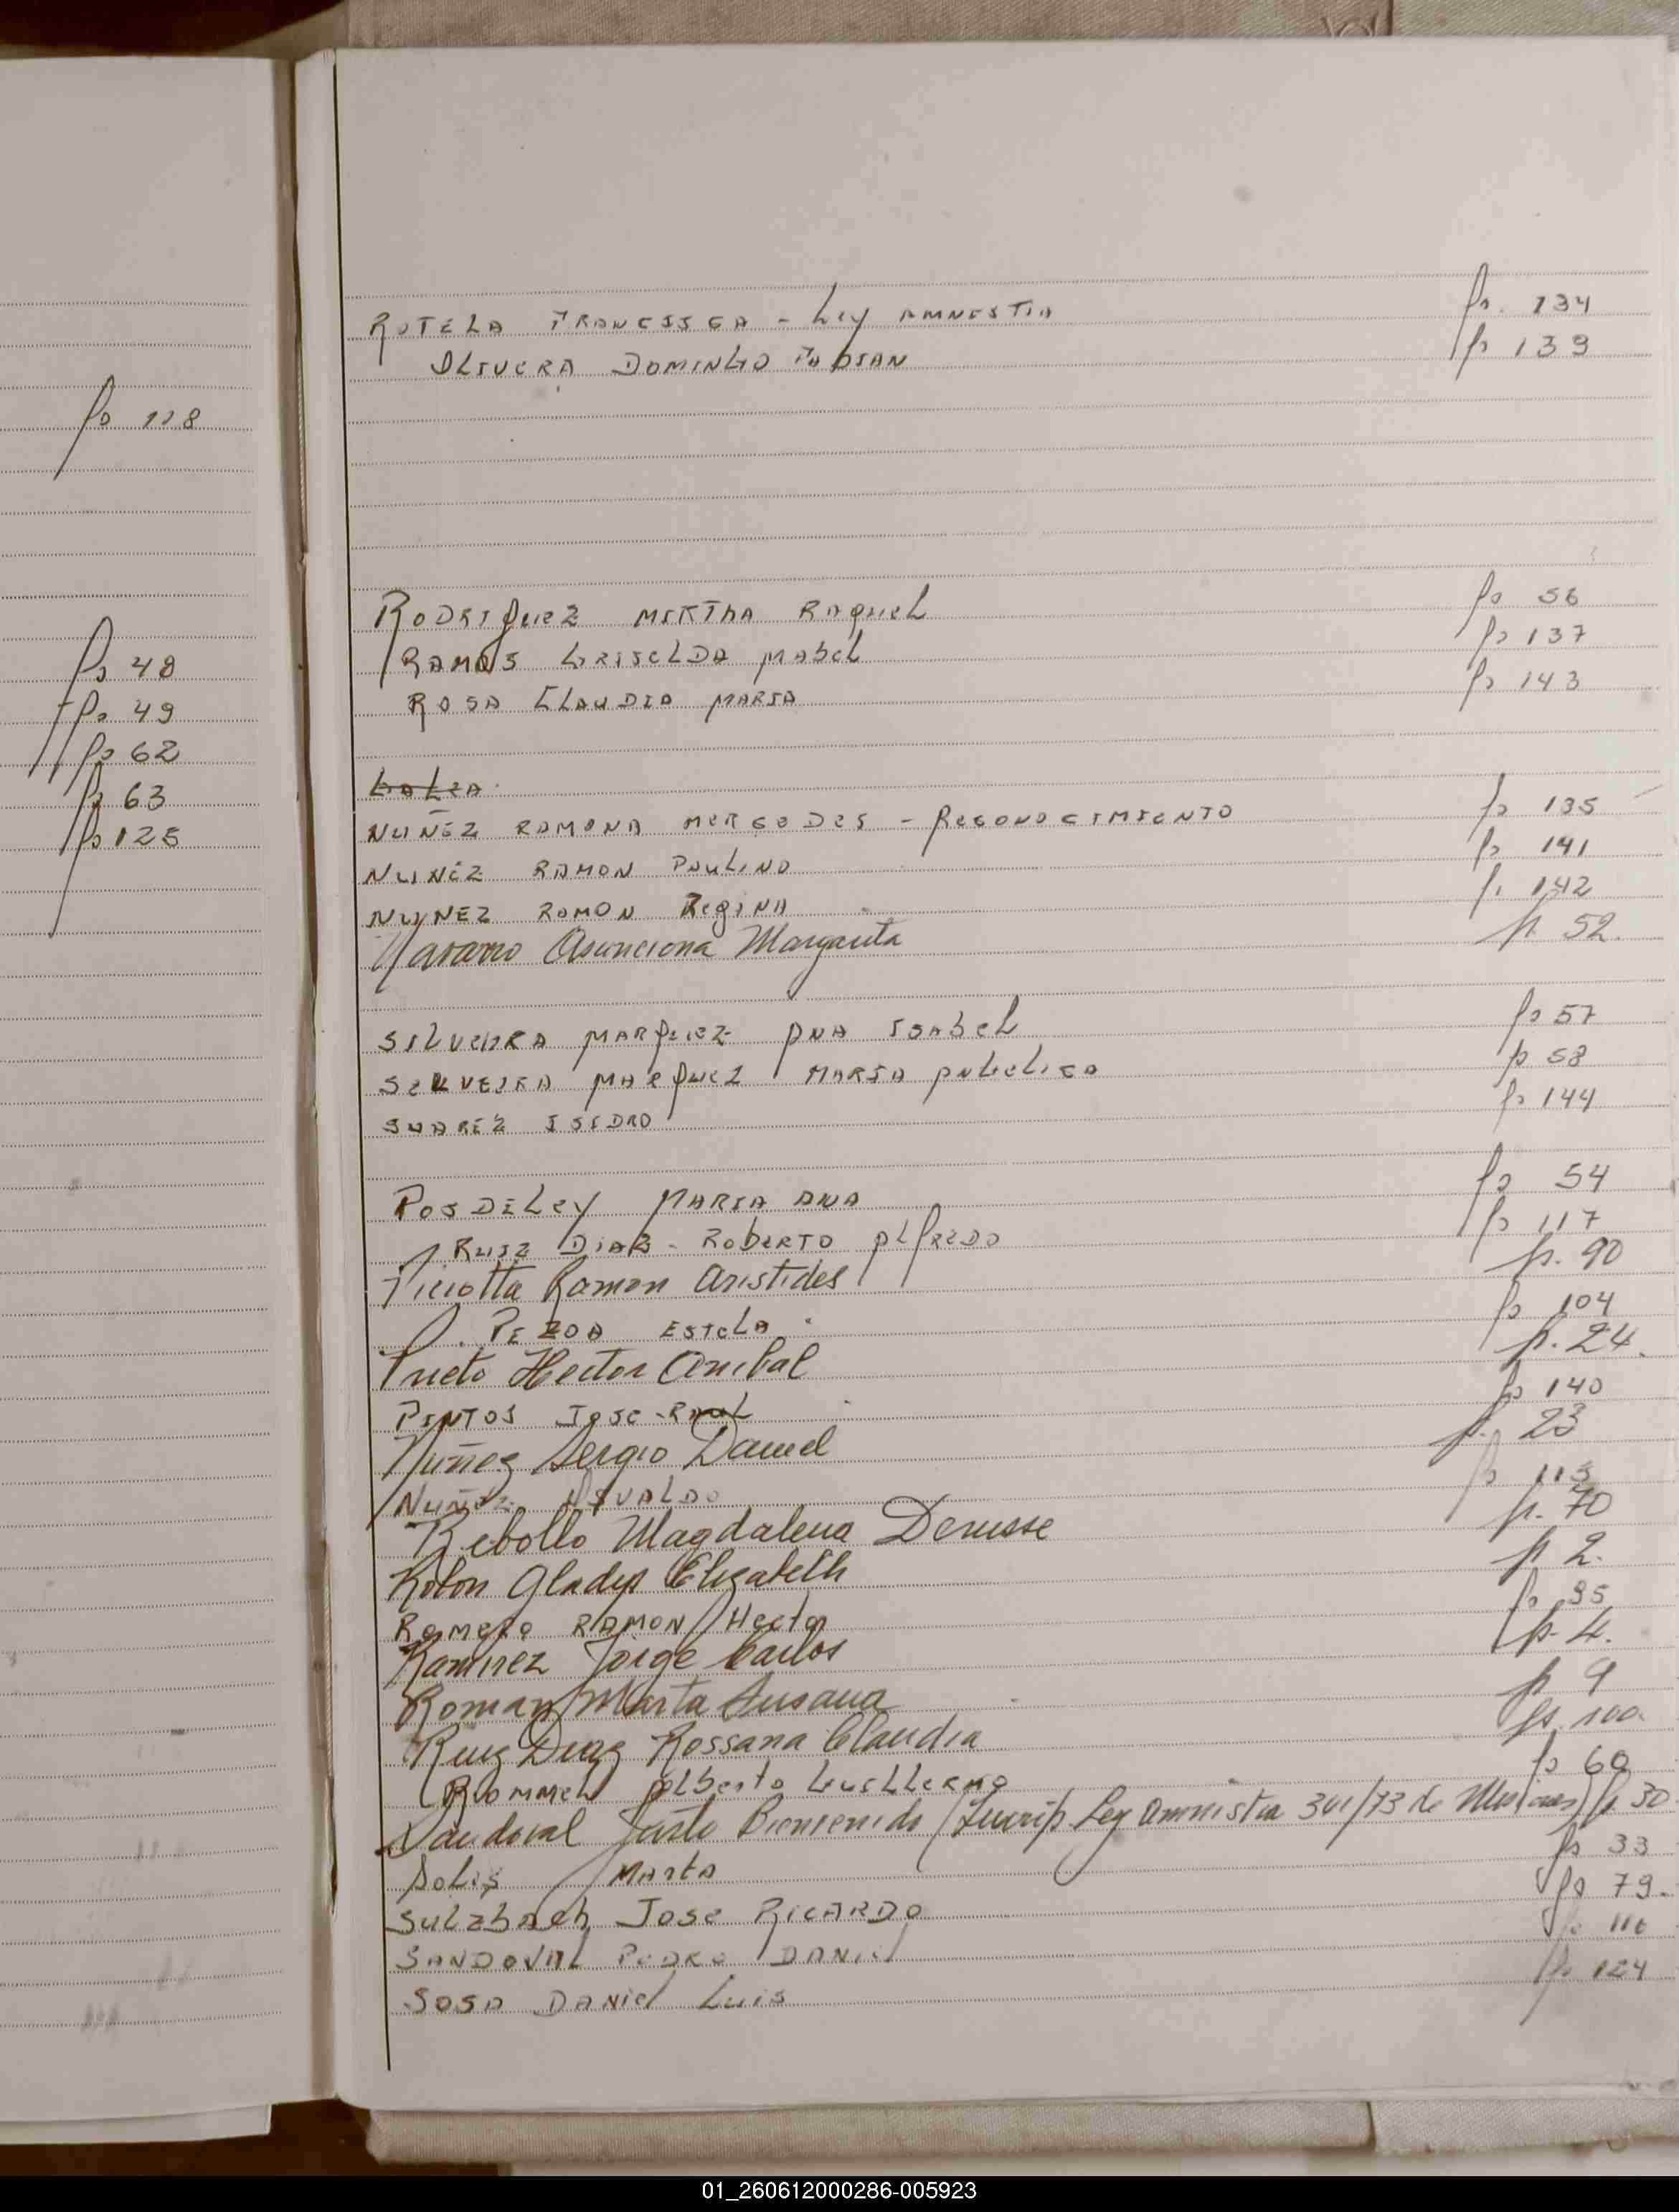 fo 128
fo 48
fo 49
fo 62
fo 63
fo 125
ROTELA FRANCISCA - Ley AMNESTIA fo. 134
OLIVERA DOMINGO FABIAN fo 139
RODRIGUEZ MIRTHA RAQUEL fo 56
RAMOS GRISELDA MABEL fo 137
ROSA CLAUDIA MARIA fo 143
NUÑEZ RAMONA MERCEDES - RECONOCIMIENTO fo 135
NUNEZ RAMON PAULINO fo 141
NUNEZ RAMON REGINA fo 142
Navarro Asunciona Margarita fo 52.
SILVEIRA MARQUEZ ANA ISABEL fo 57
SILVEIRA MARQUEZ MARIA ANGELICA fo 58
SUAREZ ISIDRO fo 144
POSDELEY MARIA ANA fo 54
RUIZ DIAZ - ROBERTO ALFREDO fo 117
Piciotta Ramon Aristides fo. 90
PEZOA ESTELA fo 104
Prieto Hector Anibal fo. 24.
PINTOS JOSE RAUL fo 140
Nuñez Sergio Daniel fo. 23
NUÑEZ OSVALDO fo 113
Rebollo Magdalena Denisse fo. 70
Rolon Gladys Elizabeth fo 2.
ROMERO RAMON Hector fo 95
Ramirez Jorge Carlos fo 4.
Roman Marta Susana fo 9
Ruiz Diaz Rossana Claudia fo. 100.
ROMMEL Alberto Guillermo fo 60
Sandoval Justo Bienvenido (Inscrip. Ley Amnistia 301/73 de Misiones) fo 30
Solis Marta fo 33
Sulzbach JOSE RICARDO fo 79.
SANDOVAL PEDRO DANIEL fo 116
SOSA DANIEL Luis fo 124
01_260612000286-005923